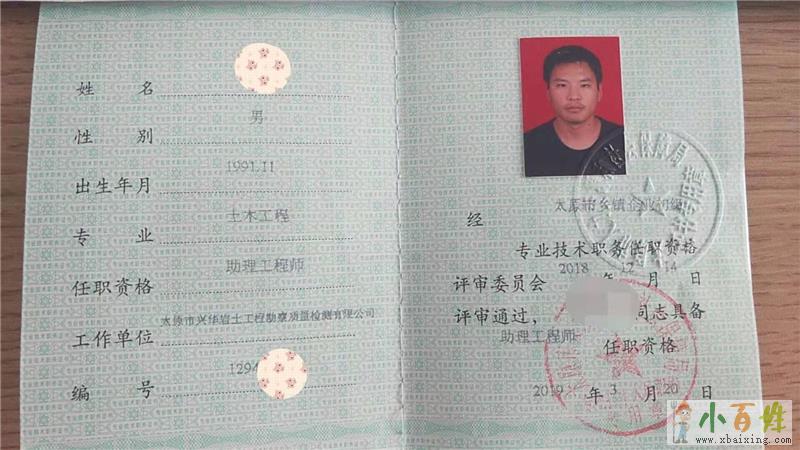 姓 名
性 别 男
出生年月 1991.11
专 业 土木工程
任职资格 助理工程师
工作单位 太原市兴华岩土工程勘察质量检测有限公司
编 号 1294
经 太原市乡镇企业初级
专业技术职务任职资格
评审委员会 2018 年 12 月 14 日
评审通过， 同志具备
助理工程师 任职资格
2019 年 3 月 20 日
小百姓
www.xbaixing.com